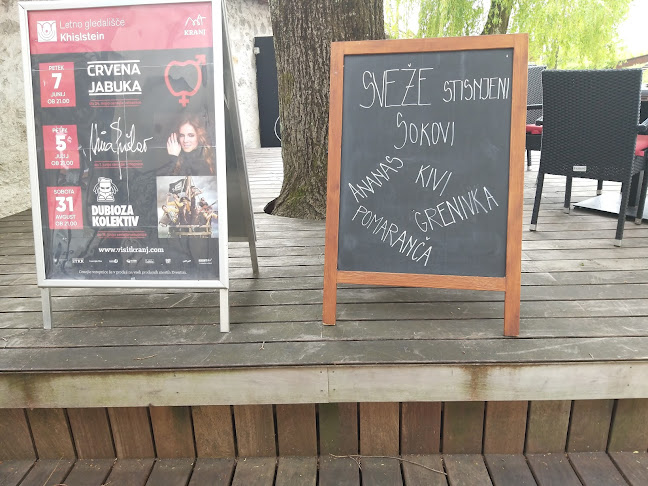 Letno gledališče
Khislstein
KRANJ
PETEK
7
JUNIJ
OB 21.00
CRVENA
JABUKA
PETEK
5
JULIJ
OB 21.00
SOBOTA
31
AVGUST
OB 21.00
DUBIOZA
KOLEKTIV
www.visitkranj.com
SVEŽE STISNJENI
SOKOVI
ANANAS
KIVI
GRENIVKA
POMARANČA